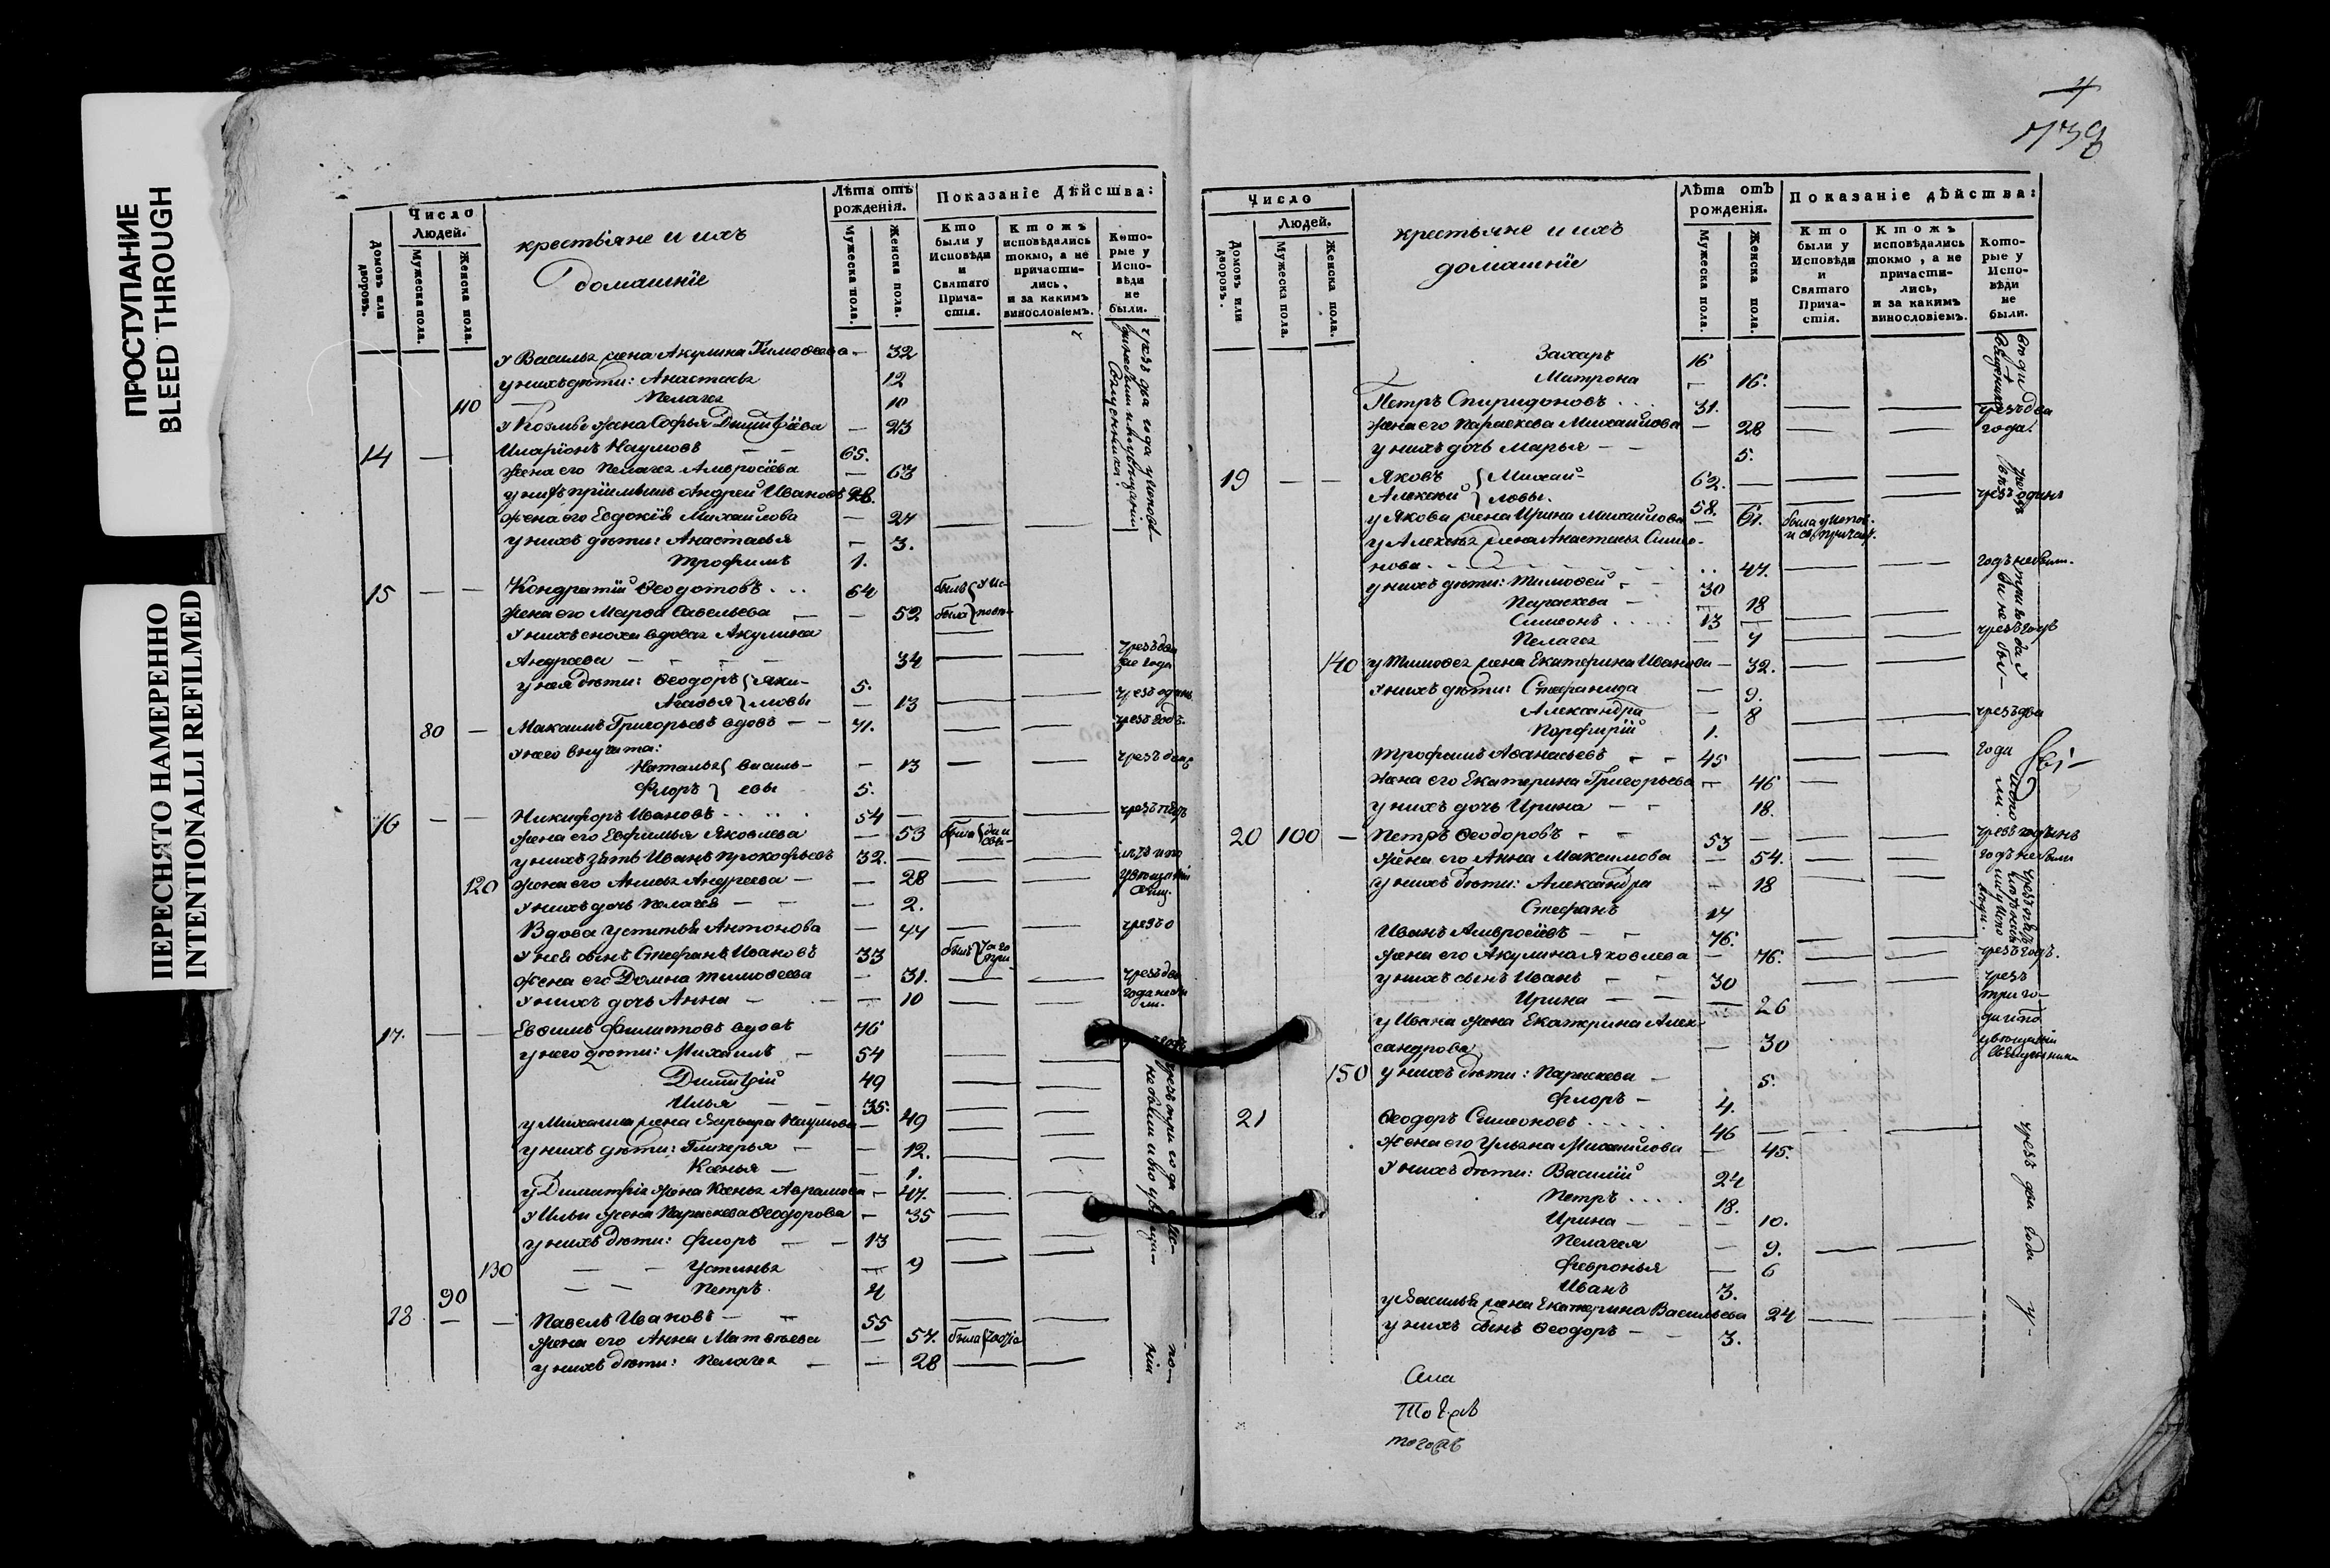 ПРОСТУПАНИЕ
BLEED THROUGH
ПЕРЕСНЯТО НАМЕРЕННО
INTENTIONALLI REFILMED
Домовъ или дворовъ.
Число
Людей.
Мужеска пола.
Женска пола.
крестьяне и ихъ
домашнїе
Лѣта отъ
рожденія.
Мужеска пола.
Женска пола.
Показаніе дѣйства:
Кто были у Исповѣди и Святаго Прича-стія.
Ктожъ исповѣдались токмо, а не причасти-лись, и за какимъ винословіемъ.
Кото-рые у Испо-вѣди не были.
у Василья жена Акулина Тимоѳеева - 32
у нихъ дѣти: Анастасья 12
110 Пелагея 10
у Козмы жена Софья Димитрїева - 23
14 - Иларїонъ Наумовъ - - 65.
жена его Пелагея Амвросїева - 63
у нихъ прїемышъ Андрей Ивановъ 28.
жена его Евдокїя Михайлова - 24
у нихъ дѣти: Анастасья - 3.
Трофимъ 1.
15 - - Кондратїй Ѳеодотовъ . . . 64 былъ
жена его Марѳа Савельева - - 52 была
у нихъ сноха вдова Акулина
Андреева - - - - 34
у нея дѣти: Ѳеодоръ 5.
Агаѳья - 13
80 - Максимъ Григорьевъ вдовъ - - 71. чрезъ годъ
у него внучата:
Наталья } Василь- - 13
Флоръ } евы 5.
16 - - Никифоръ Ивановъ . . . . . 54
жена его Евфимья Яковлева - 53 была
у нихъ зять Иванъ Прокофьевъ 32.
120 жена его Анисья Андреева - - 28
у нихъ дочь Пелагея - - - 2.
Вдова Устинья Антонова - 44
у нея сынъ Стефанъ Ивановъ 33 былъ
жена его Домна Тимоѳеева - 31.
у нихъ дочь Анна - - - 10
17. - - Евѳимъ Филиповъ вдовъ 76
у него дѣти: Михаилъ - 54
Димитрїй 49
Илья - - 35.
у Михаила жена Варвара Наумова - 49
у нихъ дѣти: Гликерья - - 12.
Ксенья - - 1.
у Димитрїя жена Ксенья Аврамова - 47.
у Ильи жена Параскева Ѳеодорова - 35
у нихъ дѣти: Флоръ - - 13
130 - - Устинья - 9
90 - - Петръ 4
18 - - Павелъ Ивановъ - - 55
жена его Анна Матвѣева - 57. была
у нихъ дѣти: Пелагея - - 28
4
738
Число
Домовъ или дворовъ.
Людей.
Мужеска пола.
Женска пола.
крестьяне и ихъ
домашнїе
Лѣта отъ
рожденія.
Мужеска пола.
Женска пола.
Показаніе дѣйства:
Кто были у Исповѣди и Святаго Прича-стія.
Ктожъ исповѣдались токмо, а не причасти-лись, и за какимъ винословіемъ.
Кото-рые у Испо-вѣди не были.
Захаръ 16
Матрона - 16.
Петръ Спиридоновъ . . . 31. чрезъ два
жена его Параскева Михайлова - 28 года.
у нихъ дочь Марья - - 5.
19 - - Яковъ } Михай- 62.
Алексїй } ловы. 58.
у Якова жена Ирина Михайлова - 61. была
у Алексїя жена Анастасья Симео-
нова . . . 47. годъ не были.
у нихъ дѣти: Тимоѳей - - 30
Параскева - - 18
Симеонъ . . . . 13
Пелагея - 7
140 у Тимоѳея жена Екатерина Иванова - 32.
у нихъ дѣти: Стефанида - 9.
Александра - 8 чрезъ два
Порфирїй 1.
Трофимъ Аѳанасьевъ - - 45 года
жена его Екатерина Григорьева - 46
у нихъ дочь Ирина - - 18.
20 100 - Петръ Ѳеодоровъ - - 53
жена его Анна Максимова - 54. годъ не были
у нихъ дѣти: Александра - 18
Стефанъ 14
Иванъ Амвросїевъ - - 76.
жена его Акулина Яковлева - 76. чрезъ годъ.
у нихъ сынъ Иванъ - - 30 чрезъ
Ирина - - - 26 три го-
у Ивана жена Екатерина Алек-
сандрова - 30
150 у нихъ дѣти: Параскева - 5.
Флоръ - 4.
21 Ѳеодоръ Симеоновъ . . . . . 46
жена его Ульяна Михайлова - 45.
у нихъ дѣти: Василїй 24
Петръ . . . . 18.
Ирина - - - 10.
Пелагея - 9.
Февронья - 6
Иванъ 3.
у Василья жена Екатерина Васильева 24
у нихъ сынъ Ѳеодоръ - - 3.
чрезъ два года